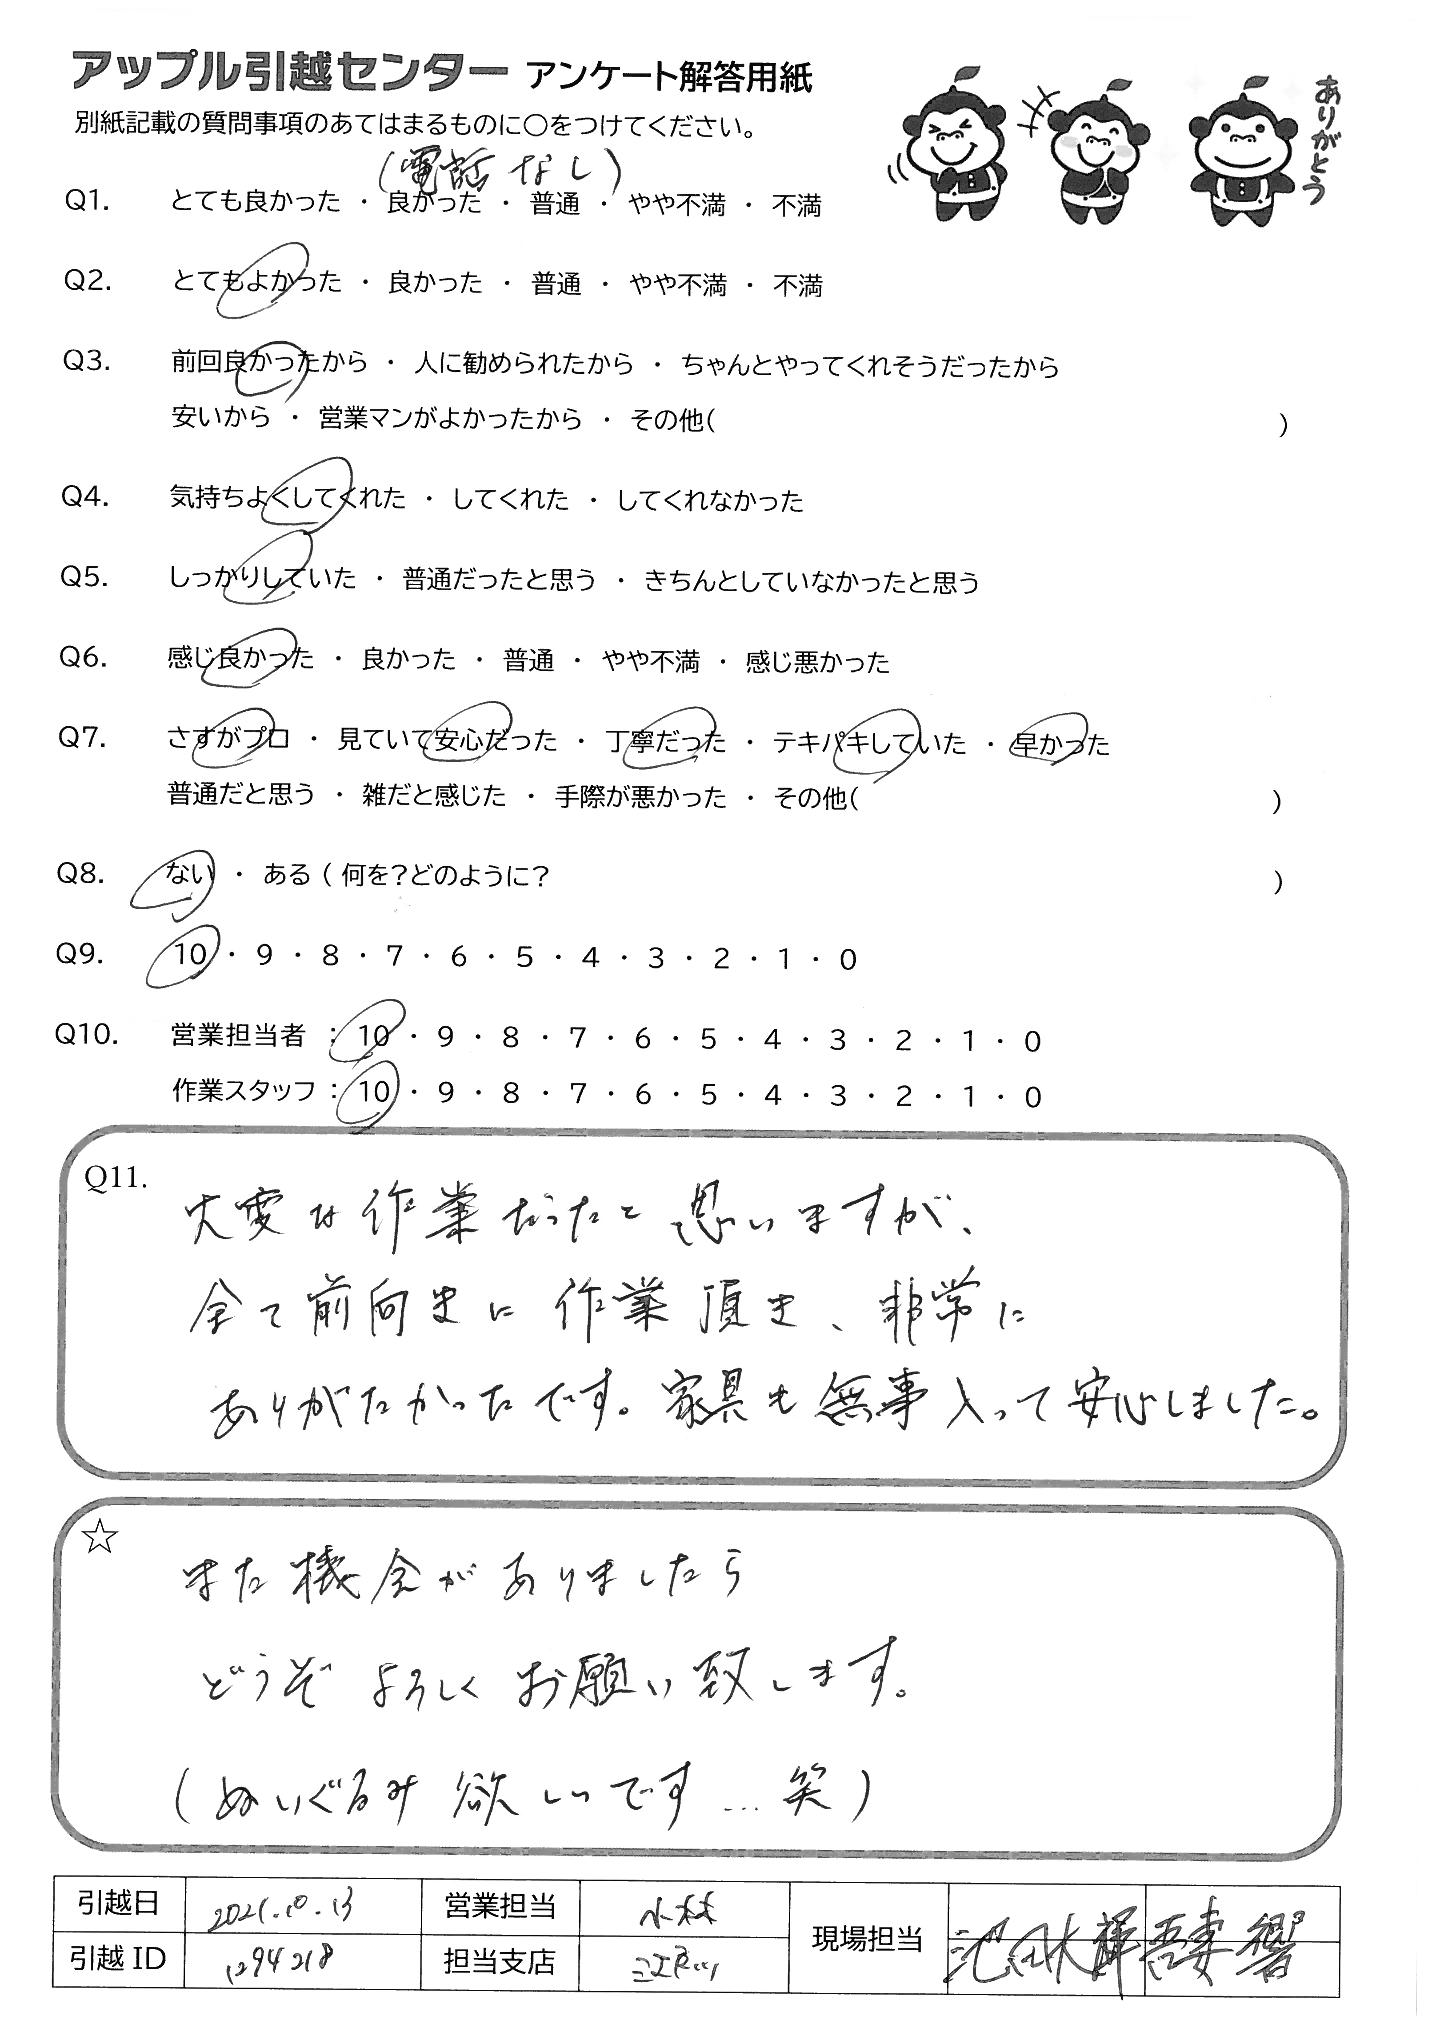 アップル引越センター アンケート解答用紙
ありがとう
別紙記載の質問事項のあてはまるものに○をつけてください。
(電話なし)
Q1. とても良かった ・ 良かった ・ 普通 ・ やや不満 ・ 不満
Q2. とてもよかった ・ 良かった ・ 普通 ・ やや不満 ・ 不満
Q3. 前回良かったから ・ 人に勧められたから ・ ちゃんとやってくれそうだったから
安いから ・ 営業マンがよかったから ・ その他( )
Q4. 気持ちよくしてくれた ・ してくれた ・ してくれなかった
Q5. しっかりしていた ・ 普通だったと思う ・ きちんとしていなかったと思う
Q6. 感じ良かった ・ 良かった ・ 普通 ・ やや不満 ・ 感じ悪かった
Q7. さすがプロ ・ 見ていて安心だった ・ 丁寧だった ・ テキパキしていた ・ 早かった
普通だと思う ・ 雑だと感じた ・ 手際が悪かった ・ その他( )
Q8. ない ・ ある ( 何を?どのように? )
Q9. 10 ・ 9 ・ 8 ・ 7 ・ 6 ・ 5 ・ 4 ・ 3 ・ 2 ・ 1 ・ 0
Q10. 営業担当者 : 10 ・ 9 ・ 8 ・ 7 ・ 6 ・ 5 ・ 4 ・ 3 ・ 2 ・ 1 ・ 0
作業スタッフ : 10 ・ 9 ・ 8 ・ 7 ・ 6 ・ 5 ・ 4 ・ 3 ・ 2 ・ 1 ・ 0
Q11.
大変な作業だったと思いますが、
全て前向きに作業頂き、非常に
ありがたかったです。家具も無事入って安心しました。
☆
また機会がありましたら
どうぞよろしくお願い致します。
(ぬいぐるみ欲しいです…笑)
引越日 2021.10.13 営業担当 小林 現場担当 池田大輝 吾妻 響
引越ID 1294218 担当支店 江戸川